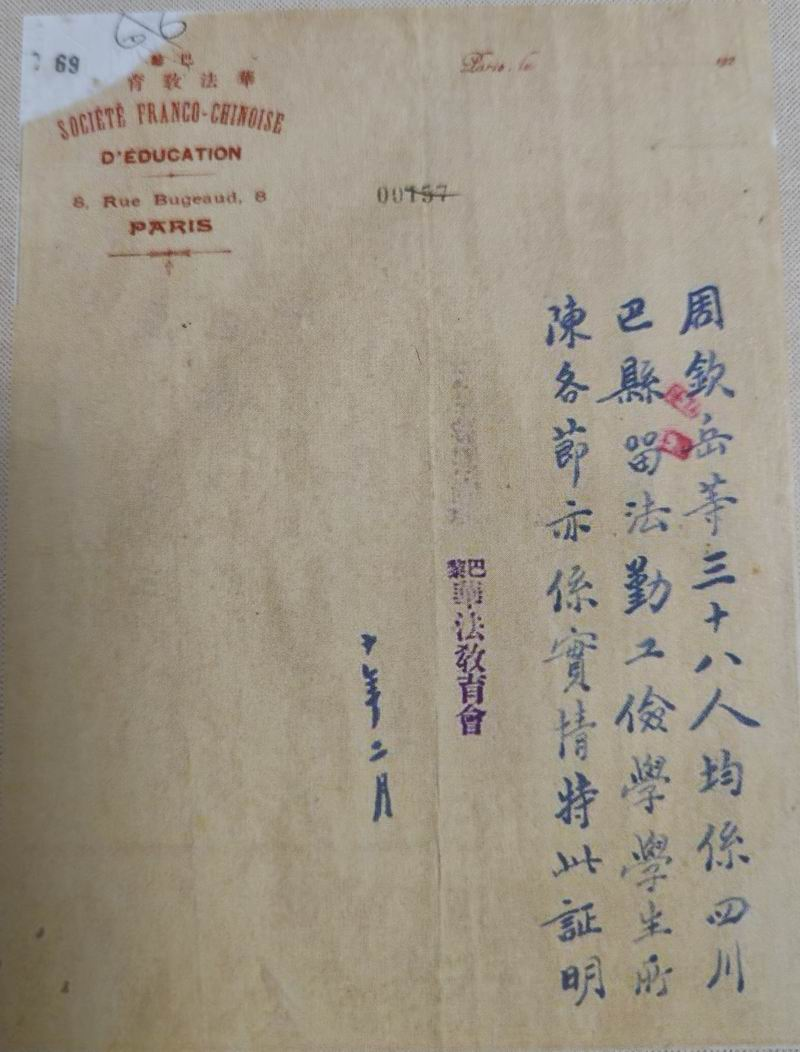 66
69
巴黎
華法教育
SOCIÉTÉ FRANCO-CHINOISE
D'ÉDUCATION
8, Rue Bugeaud, 8
PARIS
Paris, le
192
00157
周欽岳等三十八人均係四川
巴縣留法勤工儉學學生所
陳各節亦係實情特此証明
巴黎華法教育會
十年二月